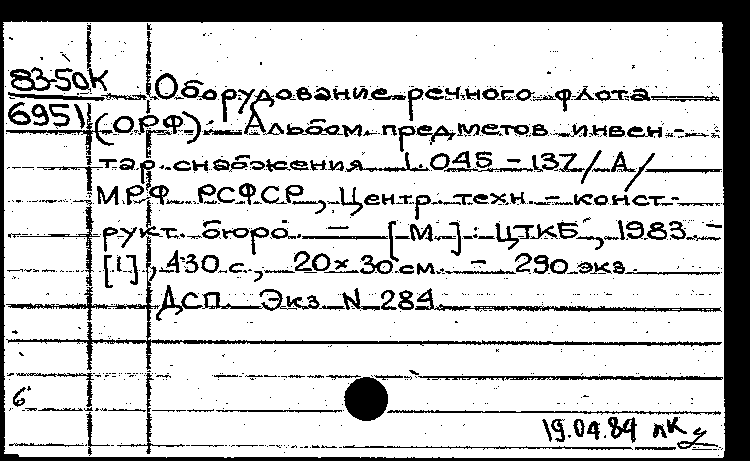 83-50К Оборудование речного флота
6951 (ОРФ): Альбом предметов инвен-
тар. снабжения 1.045-137/А/
МРФ РСФСР, Центр. техн. - конст-
рукт. бюро. — [М.]: ЦТКБ, 1983. -
[1], 430 с., 20×30 см. - 290 экз.
ДСП. Экз N 284.
6
19.04.84 лк